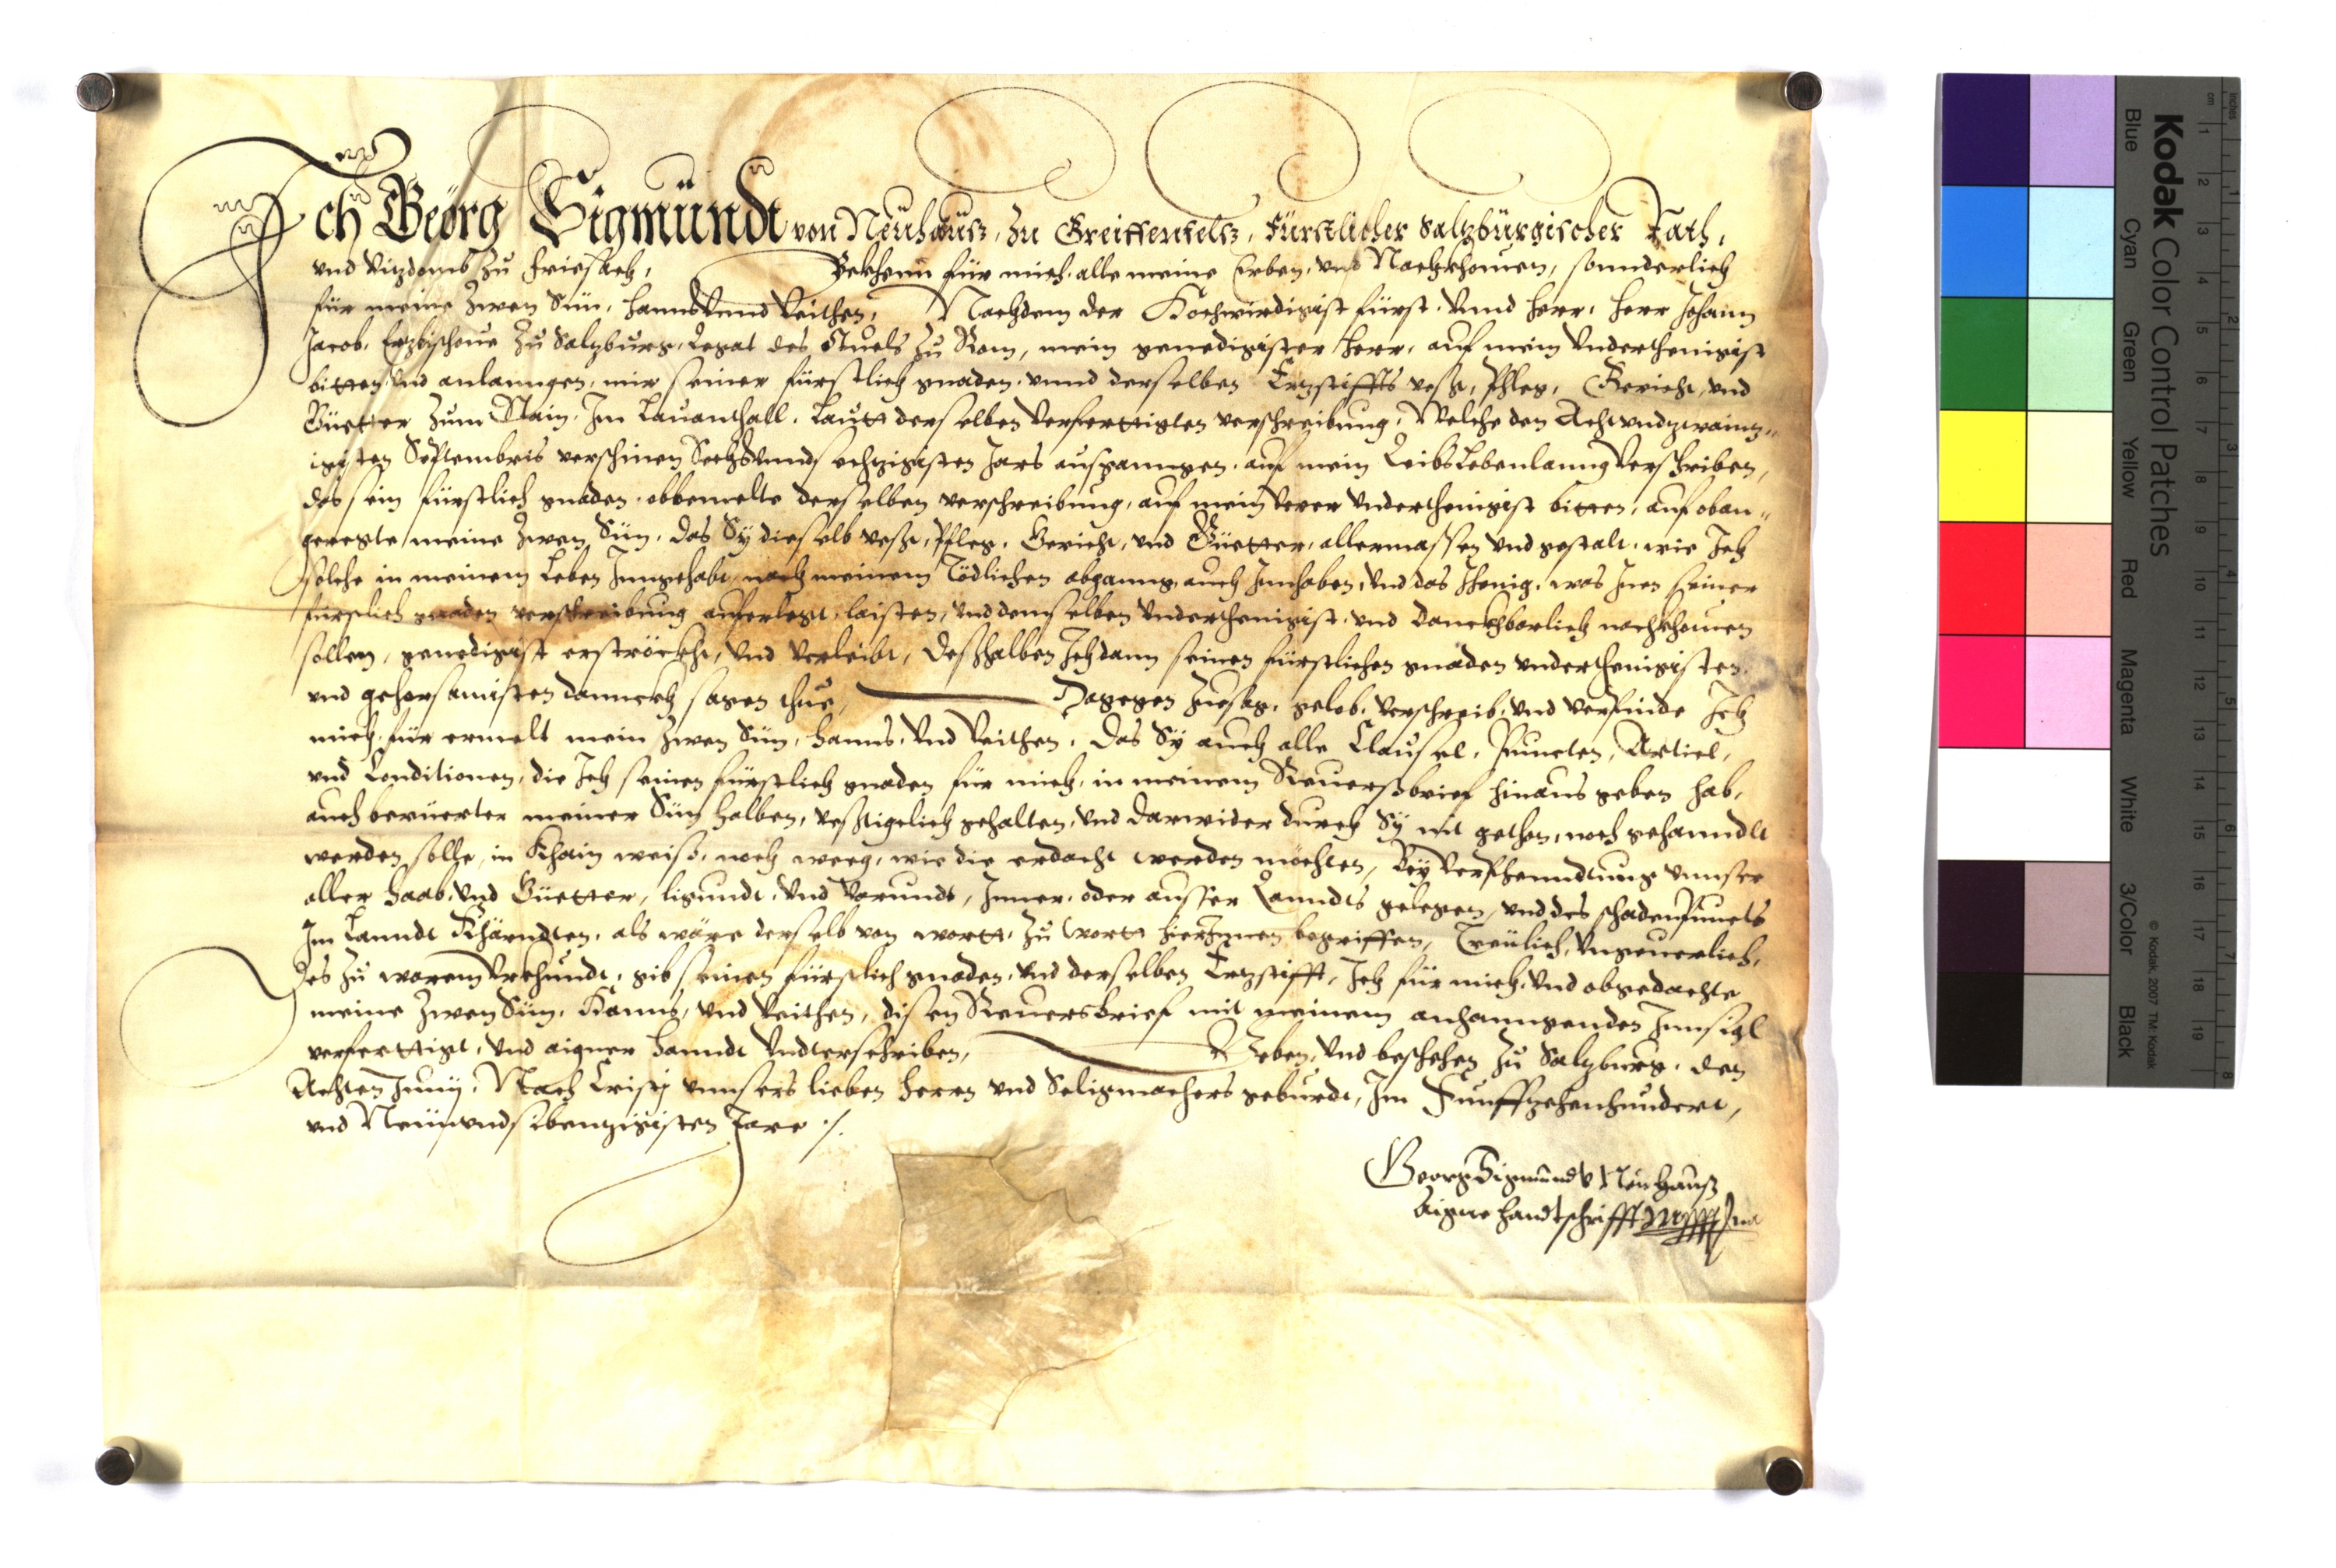 Ich Georg Sigmundt von Neuhauß, zu Greiffenfels, Fürstlicher Saltzburgischer Rath,
vnd Vizdomb zu Friesach, Bekhenn für mich, alle meine Erben, vnd Nachkhomen, sonnderlich
für meine zwen Sün, Hanns vnnd Veithen, Nachdem der Hochwirdigist Fürst, vnnd Herr, Herr Johann
Jacob, Erzbischoue zu Salzburg, Legat des Stuels zu Rom, mein genedigister Herr, auf mein vnderthenigist
bitten vnd anlanngen, mir seiner fürstlich gnaden, vnnd derselben Erzstiffts vesst, Phleg, Gericht, vnd
Güetter zum Stain, Im Lauanthall, Lautt derselben verferttigten verschreibung, Welche den Achtvndzwainz-
igisten Septembris verschinen Sechsvndsechzigisten Jars ausganngen, auf mein Leibs Lebenlanng verschriben,
das sein fürstlich gnaden, obbemelte derselben verschreibung, auf mein verer vnderthenigist bitten, auf oban-
geregte meine zwen Sün, das Sy dieselb vesst, Pfleg, Gericht, vnd Güetter, allermassen vnd gestalt, wie Ich
solche in meinem Leben Inngehabt, nach meinem Tödlichen abganng, auch Innhaben, vnd das Ihenig, was Inen seiner
fürstlich gnaden verschreibung auferlegt, laisten, vnd demselben vnderthenigist, vnd danckhbarlich nachkhomen
sollen, genedigist erströckht, vnd verleibt, Desshalben Ich dann seinen fürstlichen gnaden vnderthenigisten
vnd gehorsamisten danckh sagen thue, Dagegen zuesag, gelob, verschreib, vnd verpinde Ich
mich, für ermelt mein zwen Sün, Hanns, vnd Veithen, Das Sy auch alle Clausel, Puncten, Articl,
vnd Conditionen, die Ich seinen fürstlich gnaden für mich, in meinem Reuerssbrief hinaus geben hab,
auch berüerter meiner Sün halben, vesstigclich gehalten, vnd darwider durch Sy nit gethan, noch gehanndlt
werden solle, in khain weiß, noch weeg, wie die erdacht werden möchten, Bey verphenndtung vnnser
aller Haab, vnd Güetter, ligundt, vnd varundt, Inner, oder ausser Lanndts gelegen, vnd des schadenpuncts
Im Lanndt Khärndten, als wäre derselb von wortt, zu wortt hierInnen begriffen, Treulich, vngeuerlich,
Des zu warem vrkhundt, gib seinen fürstlich gnaden, vnd derselben Erzstifft, Ich für mich, vnd obgedachte
meine zwen Sün, Hanns, vnd Veithen, disen Reuersbrief mit meinem anhanngenden Innsigl
verferttigt, vnd aigner Hanndt vndterschriben, Geben, vnd beschehen zu Salzburg, den
Achten Junij, Nach Cristj vnnsers lieben Herrn vnd Seligmachers geburdt, Im Funffzehenhundert,
vnd Neünvndsibenzigisten Jare ./.
Georg Sigmundt v Neuhauß
Aigne Handtschrifft
Kodak Color Control Patches
Blue Cyan Green Yellow Red Magenta White 3/Color Black
© Kodak, 2007 TM: Kodak
inches 1 2 3 4 5 6 7 8
cm 1 2 3 4 5 6 7 8 9 10 11 12 13 14 15 16 17 18 19